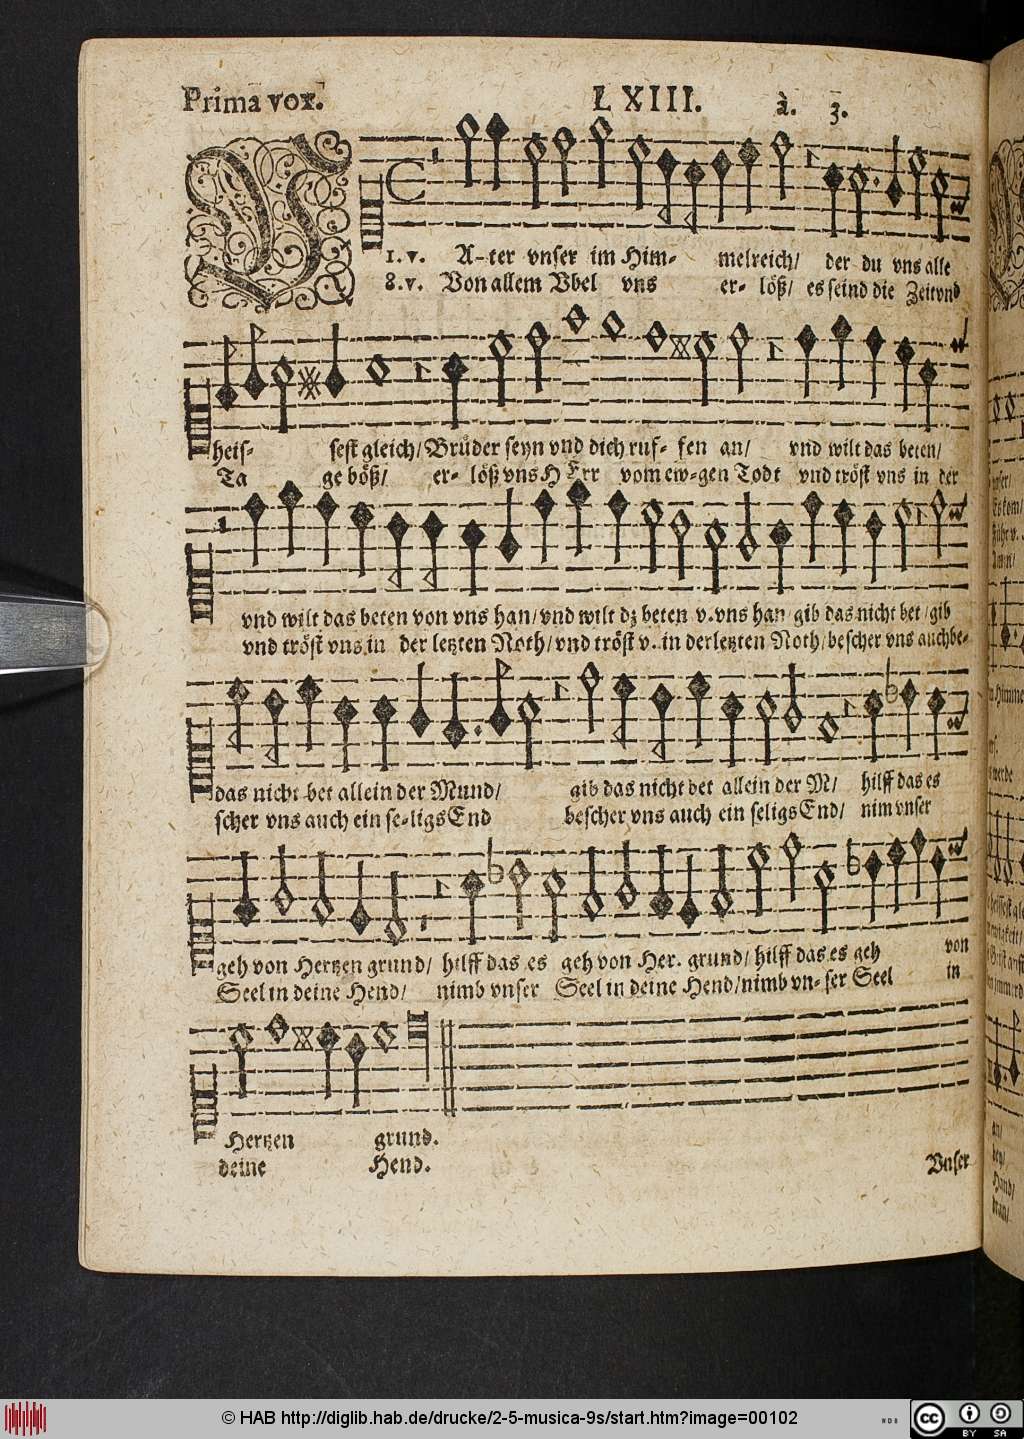 Prima vox. LXIII. à. 3.
V
1.v. A-ter vnser im Him- melreich/ der du vns alle
8.v. Von allem Vbel vns er- löß/ es seind die Zeit vnd
heis- sest gleich/ Brůder seyn vnd dich ruf- fen an/ vnd wilt das beten/
Ta ge böß/ er- löß vns HErr vom ew-gen Todt vnd tröst vns in der
vnd wilt das beten von vns han/ vnd wilt dz beten v. vns han gib das nicht bet/ gib
vnd tröst vns in der letzten Noth/ vnd tröst v. in der letzten Noth/ bescher vns auch be-
das nicht bet allein der Mund/ gib das nicht bet allein der M/ hilff das es
scher vns auch ein se-ligs End bescher vns auch ein seligs End/ nim vnser
geh von Hertzen grund/ hilff das es geh von Her. grund/ hilff das es geh von
Seel in deine Hend/ nimb vnser Seel in deine Hend/ nimb vn- ser Seel in
Hertzen grund.
deine Hend.
Vnser
© HAB http://diglib.hab.de/drucke/2-5-musica-9s/start.htm?image=00102
cc BY SA